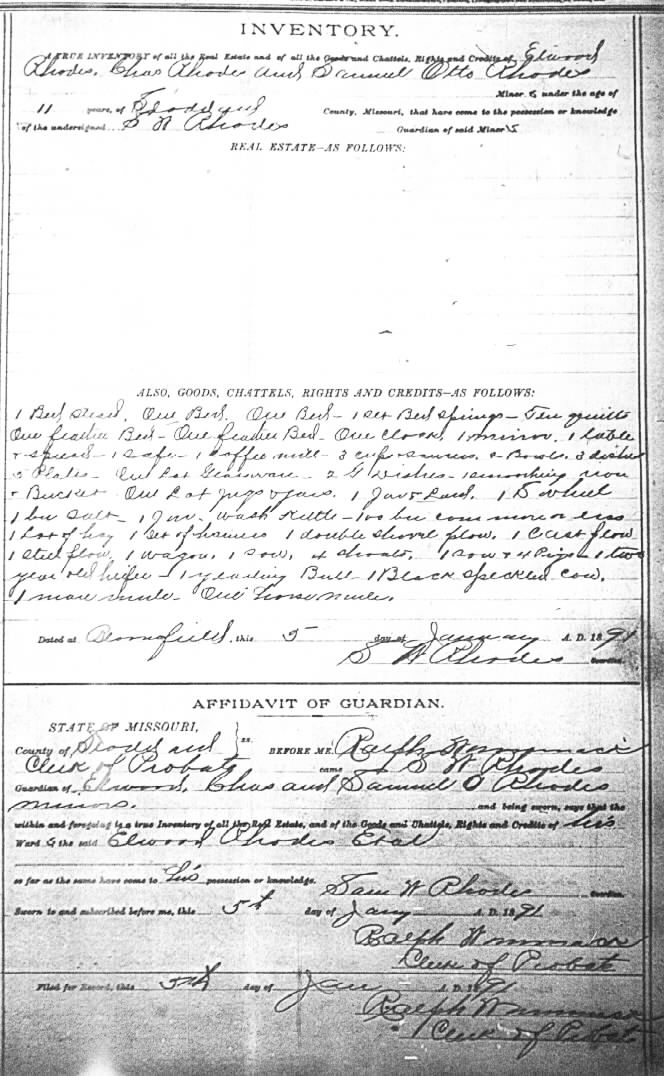 INVENTORY.
A TRUE INVENTORY of all the Real Estate and of all the Goods and Chattels, Rights and Credits of Elwood
Rhodes, Chas Rhodes and Samuel Otto Rhodes
Minor s under the age of
11 years, of Stoddard County, Missouri, that have come to the possession or knowledge
of the undersigned S W Rhodes Guardian of said Minor s
REAL ESTATE—AS FOLLOWS:
ALSO, GOODS, CHATTELS, RIGHTS AND CREDITS—AS FOLLOWS:
1 Bed stead, One Bed, One Bed – 1 set Bed springs – Ten quilts
One feather Bed – One feather Bed – One clock, 1 mirror, 1 table
1 Safe – 1 coffee mill – 3 cups & saucers, Bowls, 3 dishes
5 Plates – One Lot Glassware – 2 G Dishes – 1 smoothing iron
& Bucket One Lot jugs & jars. 1 Jar & Lard. 1 S wheel
1 bu Salt – 1 Jar, wash Kettle – 100 bu corn more or less
1 Lot of hay 1 set of harness 1 double shovel plow, 1 Cast plow
1 steel plow, 1 wagon, 1 sow, 4 shoats, 1 sow & 4 Pigs – 1 two
year old heifer – 1 yearling Bull – 1 Black speckled cow,
1 mare mule – One horse mule.
Dated at Bloomfield, this 5 day of January A. D. 1891
S W Rhodes Guardian.
AFFIDAVIT OF GUARDIAN.
STATE OF MISSOURI,
County of Stoddard ss. BEFORE ME, Ralph Wammack
Clerk of Probate came S W Rhodes
Guardian of Elwood, Chas and Samuel O Rhodes
minors. and being sworn, says that the
within and foregoing is a true Inventory of all the Real Estate, and of the Goods and Chattels, Rights and Credits of his
Ward s the said Elwood Rhodes Et al
so far as the same have come to his possession or knowledge.
Sam W Rhodes Guardian.
Sworn to and subscribed before me, this 5th day of Jany A. D. 1891
Ralph Wammack
Clerk of Probate
Filed for Record, this 5th day of Jan A. D. 1891
Ralph Wammack
Clerk of Probate